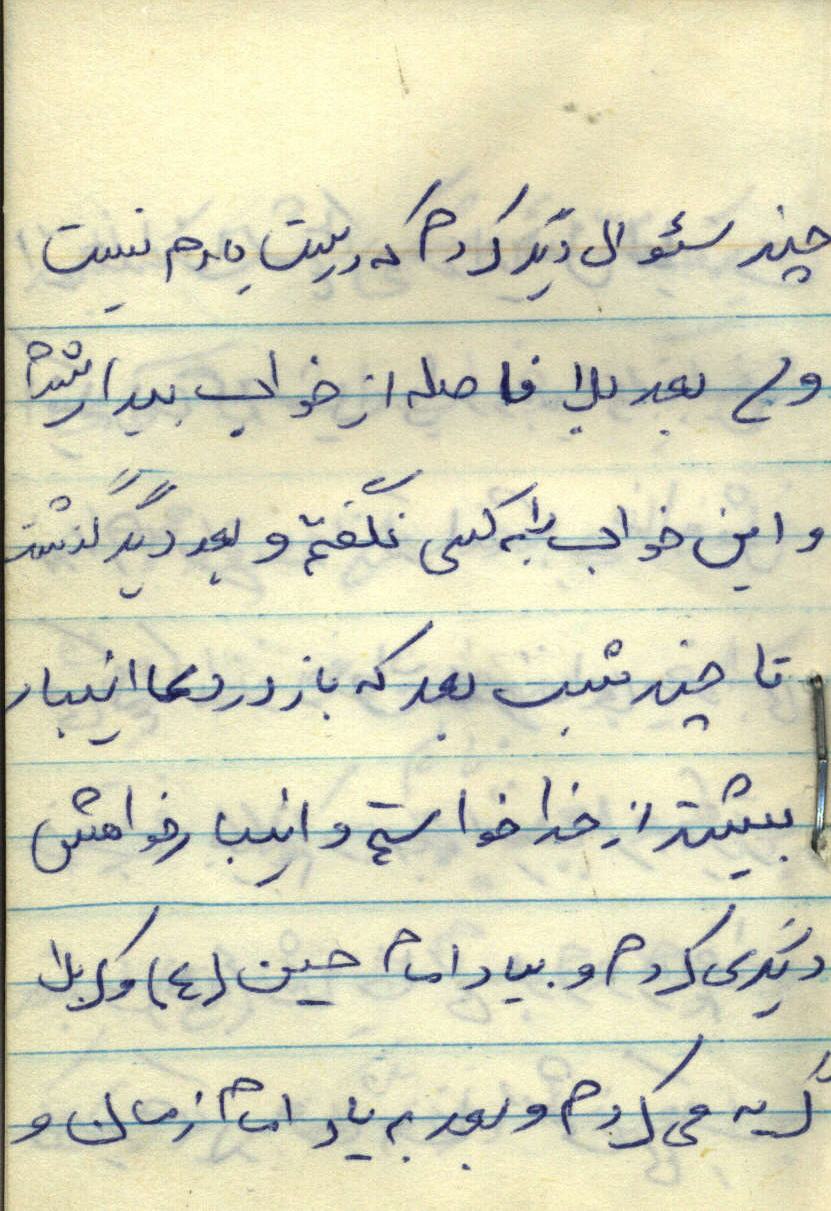 چند سئوال دیگر کردم که درست یادم نیست
و بعد بلا فاصله از خواب بیدار شدم
و این خواب را به کسی نگفتم و بعد دیگر گذشت
تا چند شب بعد که باز در دعا اینبار
بیشتر از خدا خواستم و اینبار خواهش
دیگری کردم و بیاد امام حسین (ع) و کربلا
گریه می کردم و بعد به یاد امام زمان و